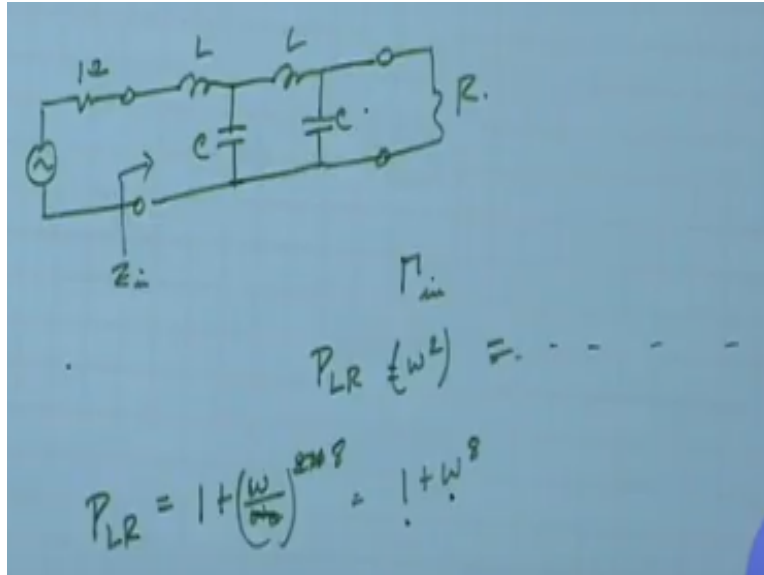 1Ω L L
C C R.
Z in
Γ in
P LR (ω²) = . - - - -
P LR = 1 + (ω/)^8 = 1 + ω^8